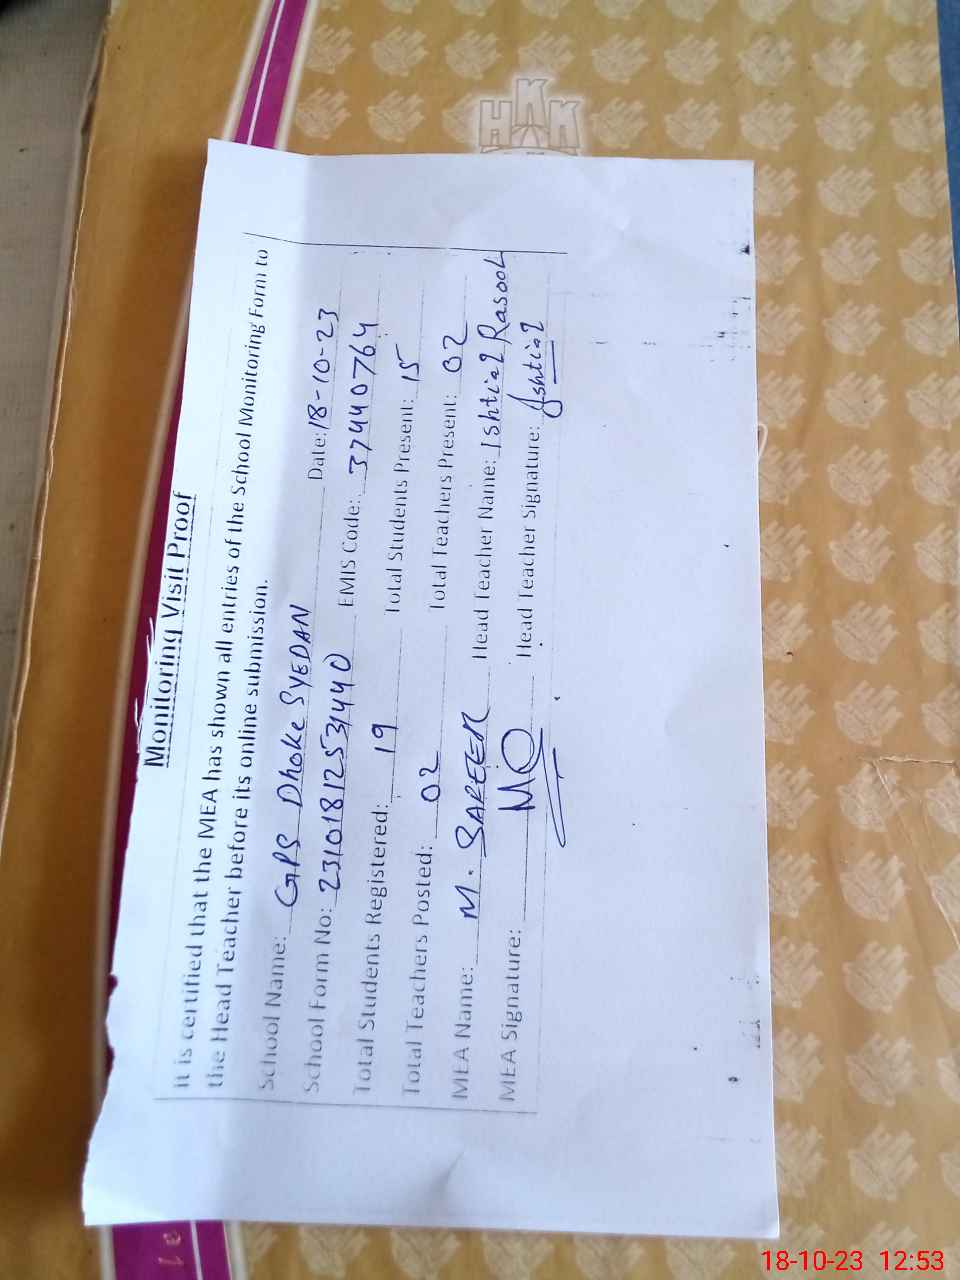 Monitoring Visit Proof
It is certified that the MEA has shown all entries of the School Monitoring Form to
the Head Teacher before its online submission.
School Name: GPS Dhoke SYEDAN Date: 18-10-23
School Form No: 23101812531440 EMIS Code: 37440764
Total Students Registered: 19 Total Students Present: 15
Total Teachers Posted: 02 Total Teachers Present: 02
MEA Name: M. SAFEER Head Teacher Name: Ishtiaq Rasool
MEA Signature: MQ Head Teacher Signature: Ishtiaq
HKK
18-10-23 12:53